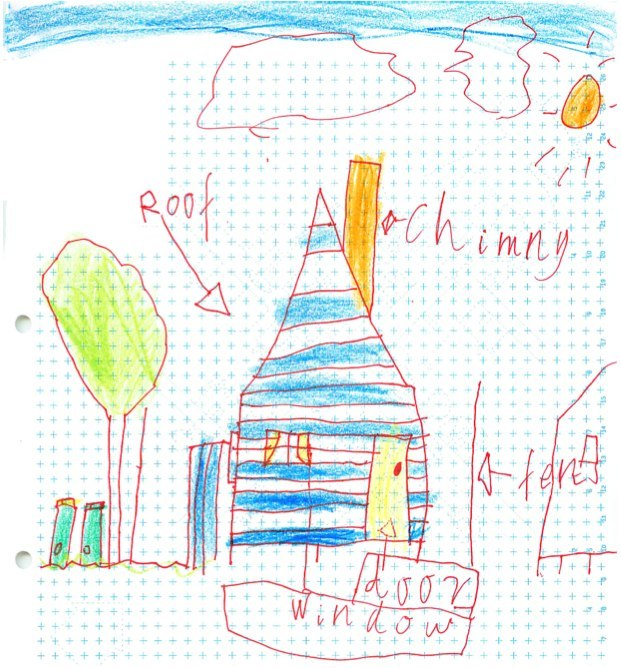 Roof
chimny
fens
door
window